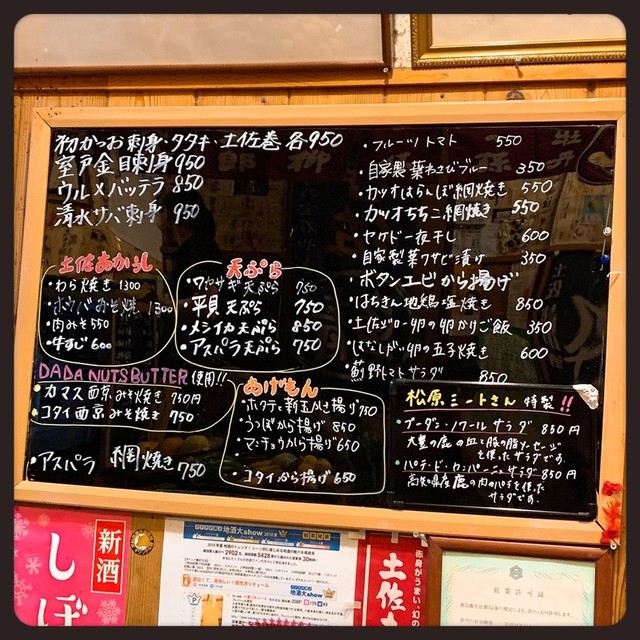 初かつお刺身・タタキ・土佐巻 各950
室戸金目刺身 950
ウルメバッテラ 850
清水サバ刺身 950
土佐あかうし
・わら焼き 1300
・ホウバみそ焼 1300
・肉みそ 550
・牛すじ 600
天ぷら
・ワカサギ天ぷら 750
・平貝天ぷら 750
・メシイカ天ぷら 850
・アスパラ天ぷら 750
DADA NUTS BUTTER 使用!!
・カマス西京みそ焼き 750円
・コタイ西京みそ焼き 750
・アスパラ 網焼き 750
あげもん
・ホタテと新玉かき揚げ 750
・うつぼから揚げ 850
・マンチョウから揚げ 650
・コタイから揚げ 650
・フルーツトマト 550
・自家製葉わさびブルー 350
・カツオはらんぼ網焼き 550
・カツオちちこ網焼き 550
・ヤケド一夜干し 600
・自家製葉ワサビ漬け 350
・ボタンエビから揚げ
・はちきん地鶏塩焼き 850
・土佐ジロー卵の卵かけご飯 350
・はなしがい卵の玉子焼き 600
・薊野トマトサラダ 850
松原ミートさん 特製!!
・ブーダン・ノワールサラダ 850円
大豊の鹿の血と豚の脂ソーセージ
を使ったサラダです。
・パテ・ド・カンパーニュサラダ 850円
高知県産鹿の肉のパテを使った
サラダです。
新酒
しぼ
地酒大show
赤身がうまい、幻の
土佐あ
営業許可証